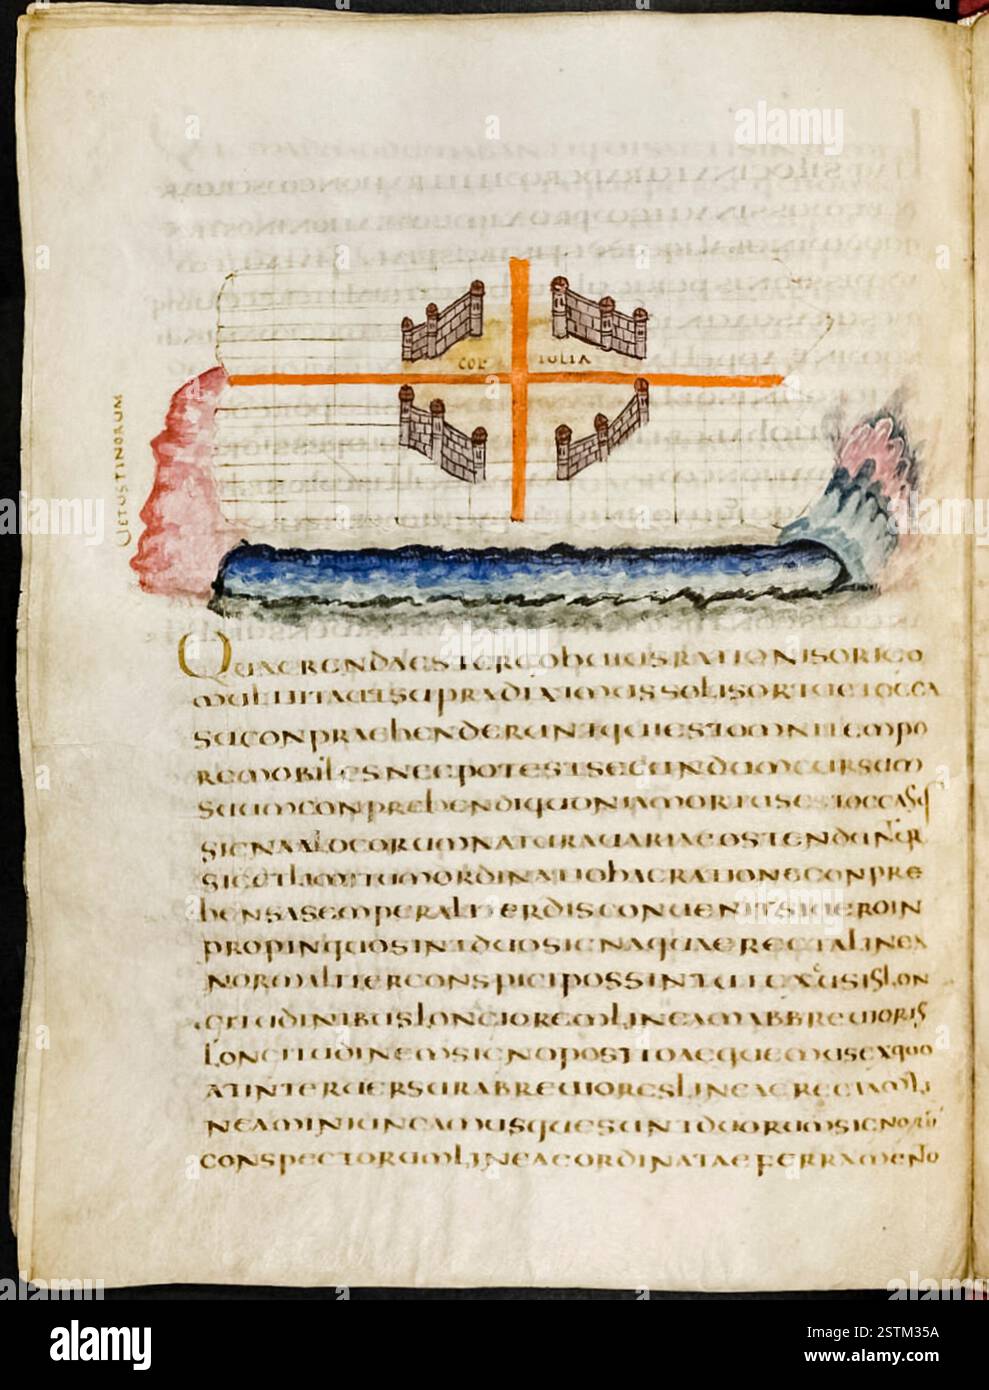 COL IULIA
UETUSTINORUM
QUAERENDAEST ERGO HUIUS RATIONIS ORIGO
MULTI TACTI SUPRA DIXIMUS SOLIS ORTUET OCCA
SU CONPRAEHENDERUNT QUI EST OMNI TEMPO
RE MOBILIS NEC POTEST SECUNDUM CURSUM
SUUM CONPREHENDI QUONIAM ORTUS ET OCCASUSQ
SIGNA A LOCORUM NATURA UARIAE OSTENDUNTUR
SIC ET LIMITUM ORDINATIO HAC RATIONE CONPRE
HENSA SEMPER ALTER DISCONUENIT SI UERO IN
PROPINQUO SINT DUO SIGNA QUAE RECTA LINEA
NORMALITER CONSPICI POSSINT UT EX
LONGIOREM LINEAM ABBREUIORIS
LONGITUDINEM SIGNO POSITO AEQUEMUS EX QUO
AT INTERUERSURA BREUIORES LINEAE RECTAM LI
NEAM INIUNGAMUS QUE SUNT DUORUM SIGNORUM
CONSPECTORUM LINEA CORDINATAE FERRAMENO
alamy
2STM35A
www.alamy.com